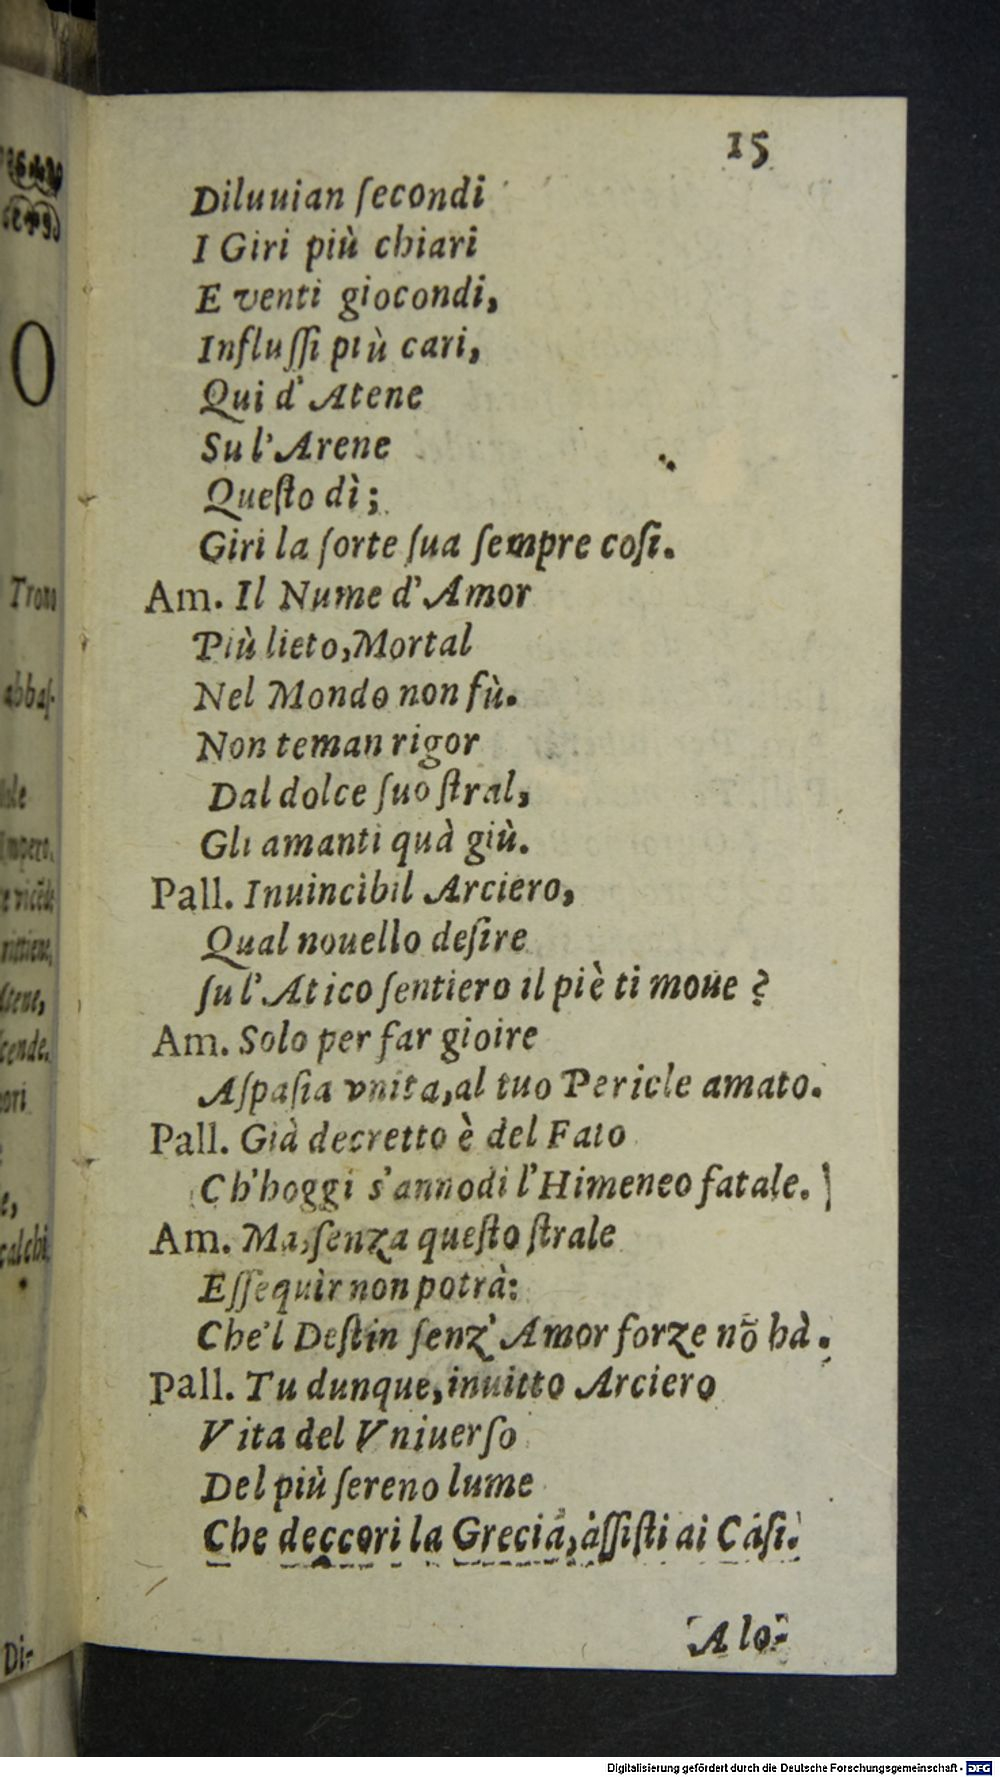 15
Diluuian ſecondi
I Giri più chiari
E venti giocondi,
Influſſi più cari,
Qui d'Atene
Su l'Arene
Queſto dì;
Giri la ſorte ſua ſempre coſi.
Am. Il Nume d'Amor
Più lieto, Mortal
Nel Mondo non fù.
Non teman rigor
Dal dolce ſuo ſtral,
Gli amanti quà giù.
Pall. Inuincibil Arciero,
Qual nouello deſire
ſu l'Atico ſentiero il piè ti moue?
Am. Solo per far gioire
Aſpaſia vnita, al tuo Pericle amato.
Pall. Già decretto è del Fato
Ch'hoggi s'annodi l'Himeneo fatale.
Am. Ma, ſenza queſto ſtrale
Eſſequìr non potrà:
Che'l Deſtin ſenz'Amor forze nõ hà.
Pall. Tu dunque, inuitto Arciero
Vita del Vniuerſo
Del più ſereno lume
Che deccori la Grecia, aſſiſti ai Caſi.
A lo-
O
Trono
abbaſ-
mpero.
Atene,
cende.
ori
calchi
Di-
Digitalisierung gefördert durch die Deutsche Forschungsgemeinschaft - DFG